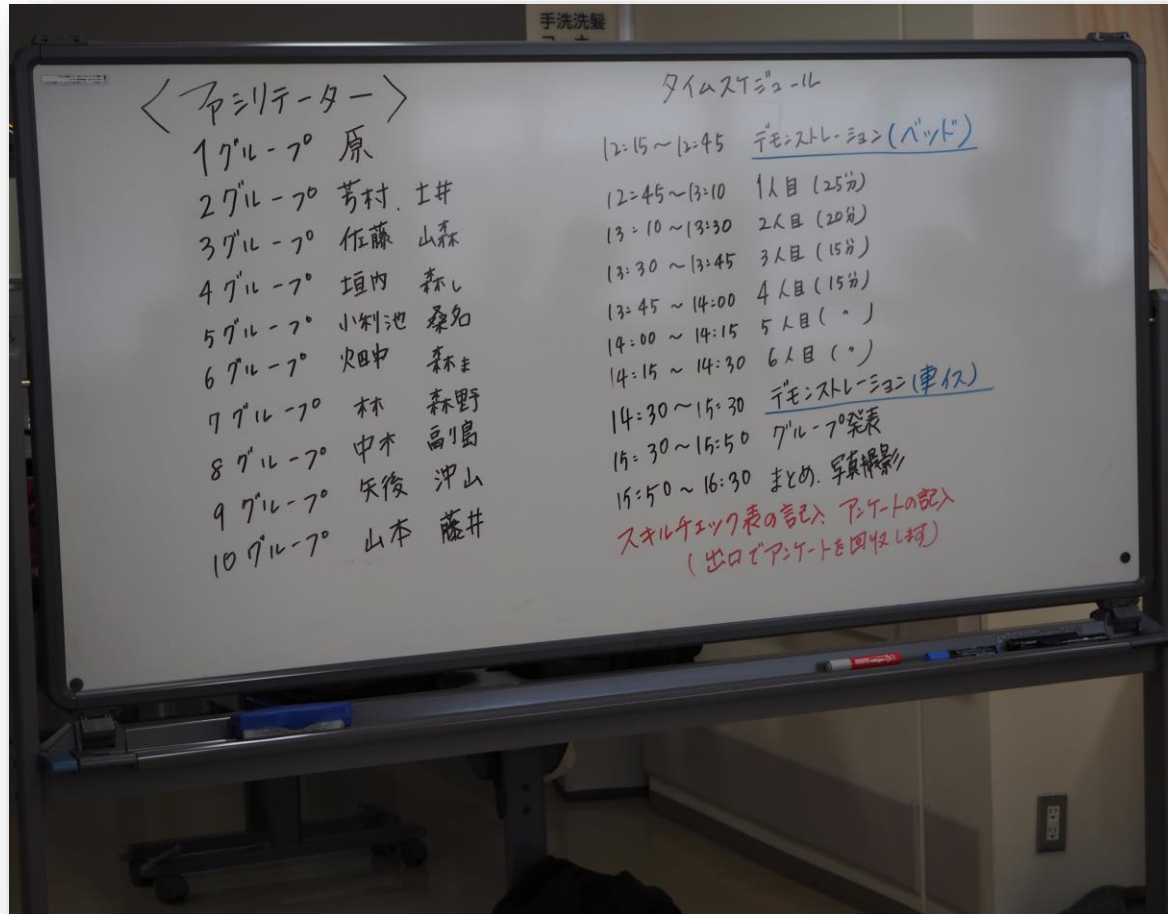 手洗洗髪
コーナー
〈ファシリテーター〉
1グループ 原
2グループ 芳村、土井
3グループ 佐藤 山森
4グループ 垣内 森し
5グループ 小利池 桑名
6グループ 畑中 森ま
7グループ 林 森野
8グループ 中木 副島
9グループ 矢後 沖山
10グループ 山本 藤井
タイムスケジュール
12:15～12:45 デモンストレーション(ベッド)
12:45～13:10 1人目(25分)
13:10～13:30 2人目(20分)
13:30～13:45 3人目(15分)
13:45～14:00 4人目(15分)
14:00～14:15 5人目(〃)
14:15～14:30 6人目(〃)
14:30～15:30 デモンストレーション(車イス)
15:30～15:50 グループ発表
15:50～16:30 まとめ、写真撮影
スキルチェック表の記入、アンケートの記入
(出口でアンケートを回収します)